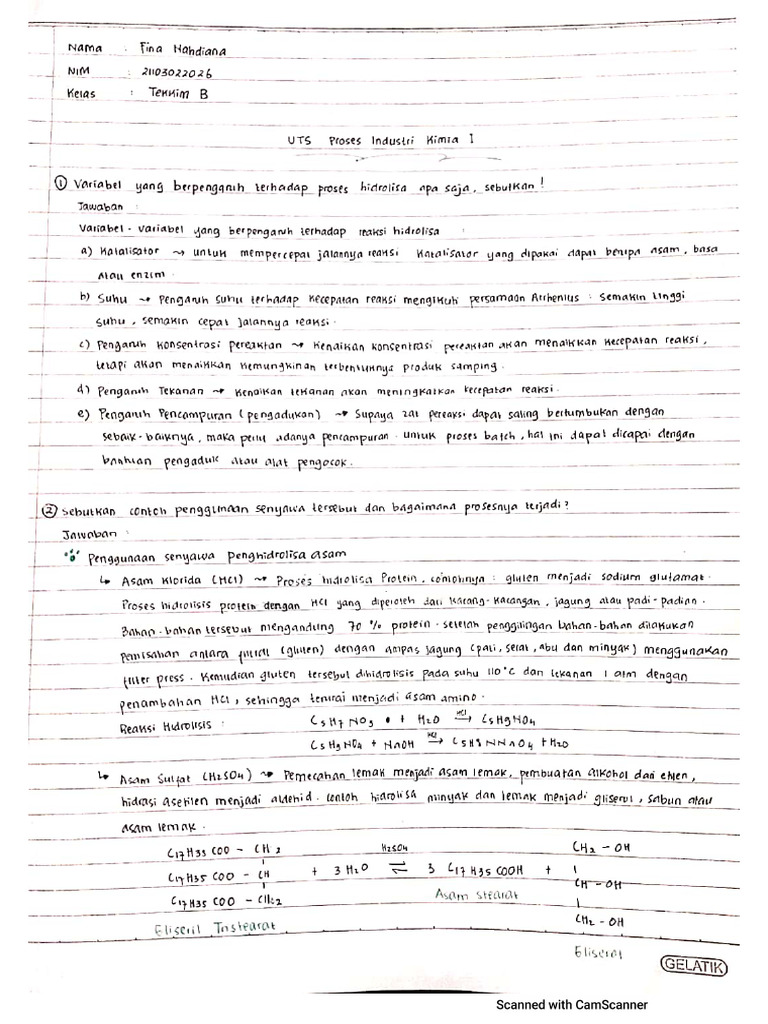 Nama : Fina Nahdiana
NIM : 21103022026
Kelas : Tekkim B
UTS Proses Industri Kimia I
① Variabel yang berpengaruh terhadap proses hidrolisa apa saja, sebutkan!
Jawaban :
Variabel-variabel yang berpengaruh terhadap reaksi hidrolisa :
a) Katalisator ⤳ untuk mempercepat jalannya reaksi Katalisator yang dipakai dapat berupa asam, basa
atau enzim.
b) Suhu ⤳ Pengaruh suhu terhadap kecepatan reaksi mengikuti persamaan Arrhenius : semakin tinggi
suhu, semakin cepat jalannya reaksi.
c) Pengaruh Konsentrasi pereaktan ⤳ Kenaikan konsentrasi pereaktan akan menaikkan kecepatan reaksi,
tetapi akan menaikkan kemungkinan terbentuknya produk samping.
d) Pengaruh Tekanan ⤳ Kenaikan tekanan akan meningkatkan kecepatan reaksi.
e) Pengaruh Pencampuran (pengadukan) ⤳ Supaya zat pereaksi dapat saling bertumbukan dengan
sebaik-baiknya, maka perlu adanya pencampuran. untuk proses batch, hal ini dapat dicapai dengan
bantuan pengaduk atau alat pengocok.
② Sebutkan contoh penggunaan senyawa tersebut dan bagaimana prosesnya terjadi?
Jawaban :
Penggunaan senyawa penghidrolisa asam
↳ Asam Klorida (HCl) ⤳ Proses hidrolisa Protein, contohnya : gluten menjadi sodium glutamat.
Proses hidrolisis protein dengan HCl yang diperoleh dari kacang-kacangan, jagung atau padi-padian.
Bahan-bahan tersebut mengandung 70 % protein. setelah penggilingan bahan-bahan dilakukan
pemisahan antara (gluten) dengan ampas jagung (pati, serat, abu dan minyak) menggunakan
filter press. Kemudian gluten tersebut dihidrolisis pada suhu 110°C dan tekanan 1 atm dengan
penambahan HCl, sehingga terurai menjadi asam amino.
Reaksi Hidrolisis : C5H7NO3 + H2O HCl→ C5H9NO4
C5H9NO4 + NaOH HCl→ C5H8NNaO4 + H2O
↳ Asam Sulfat (H2SO4) ⤳ Pemecahan lemak menjadi asam lemak, pembuatan alkohol dari etilen,
hidrasi asetilen menjadi aldehid. contoh hidrolisa minyak dan lemak menjadi gliserol, sabun atau
asam lemak.
C17H35COO - CH2 CH2 - OH
C17H35COO - CH + 3 H2O H2SO4⇌ 3 C17H35COOH + CH - OH
C17H35COO - CH2 Asam stearat CH2 - OH
Gliseril Tristearat
Gliserol
GELATIK
Scanned with CamScanner